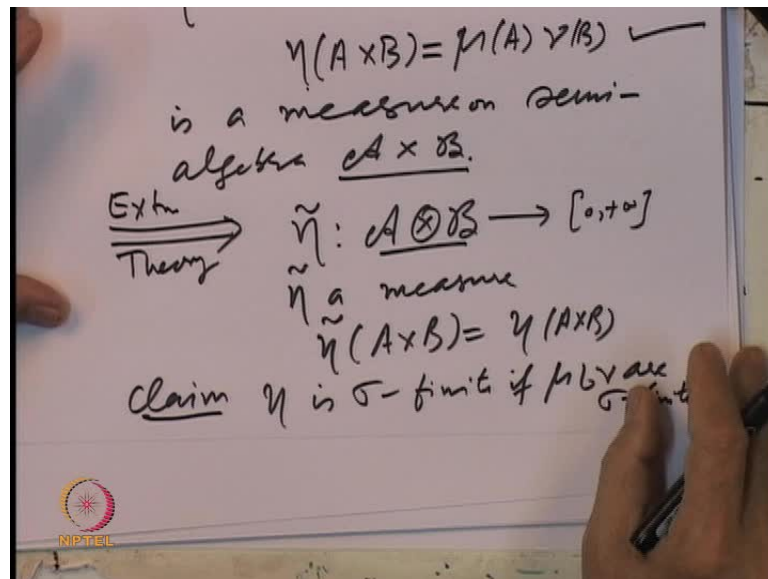 η(A×B)=μ(A) ν(B)
is a measure on semi-
algebra 𝒜 × ℬ.
Extn
Theory
η̃ : 𝒜 ⊗ ℬ → [0,+∞]
η̃ a measure
η̃(A×B)= η(A×B)
Claim η is σ-finite if μ & ν are
σ-finite
NPTEL